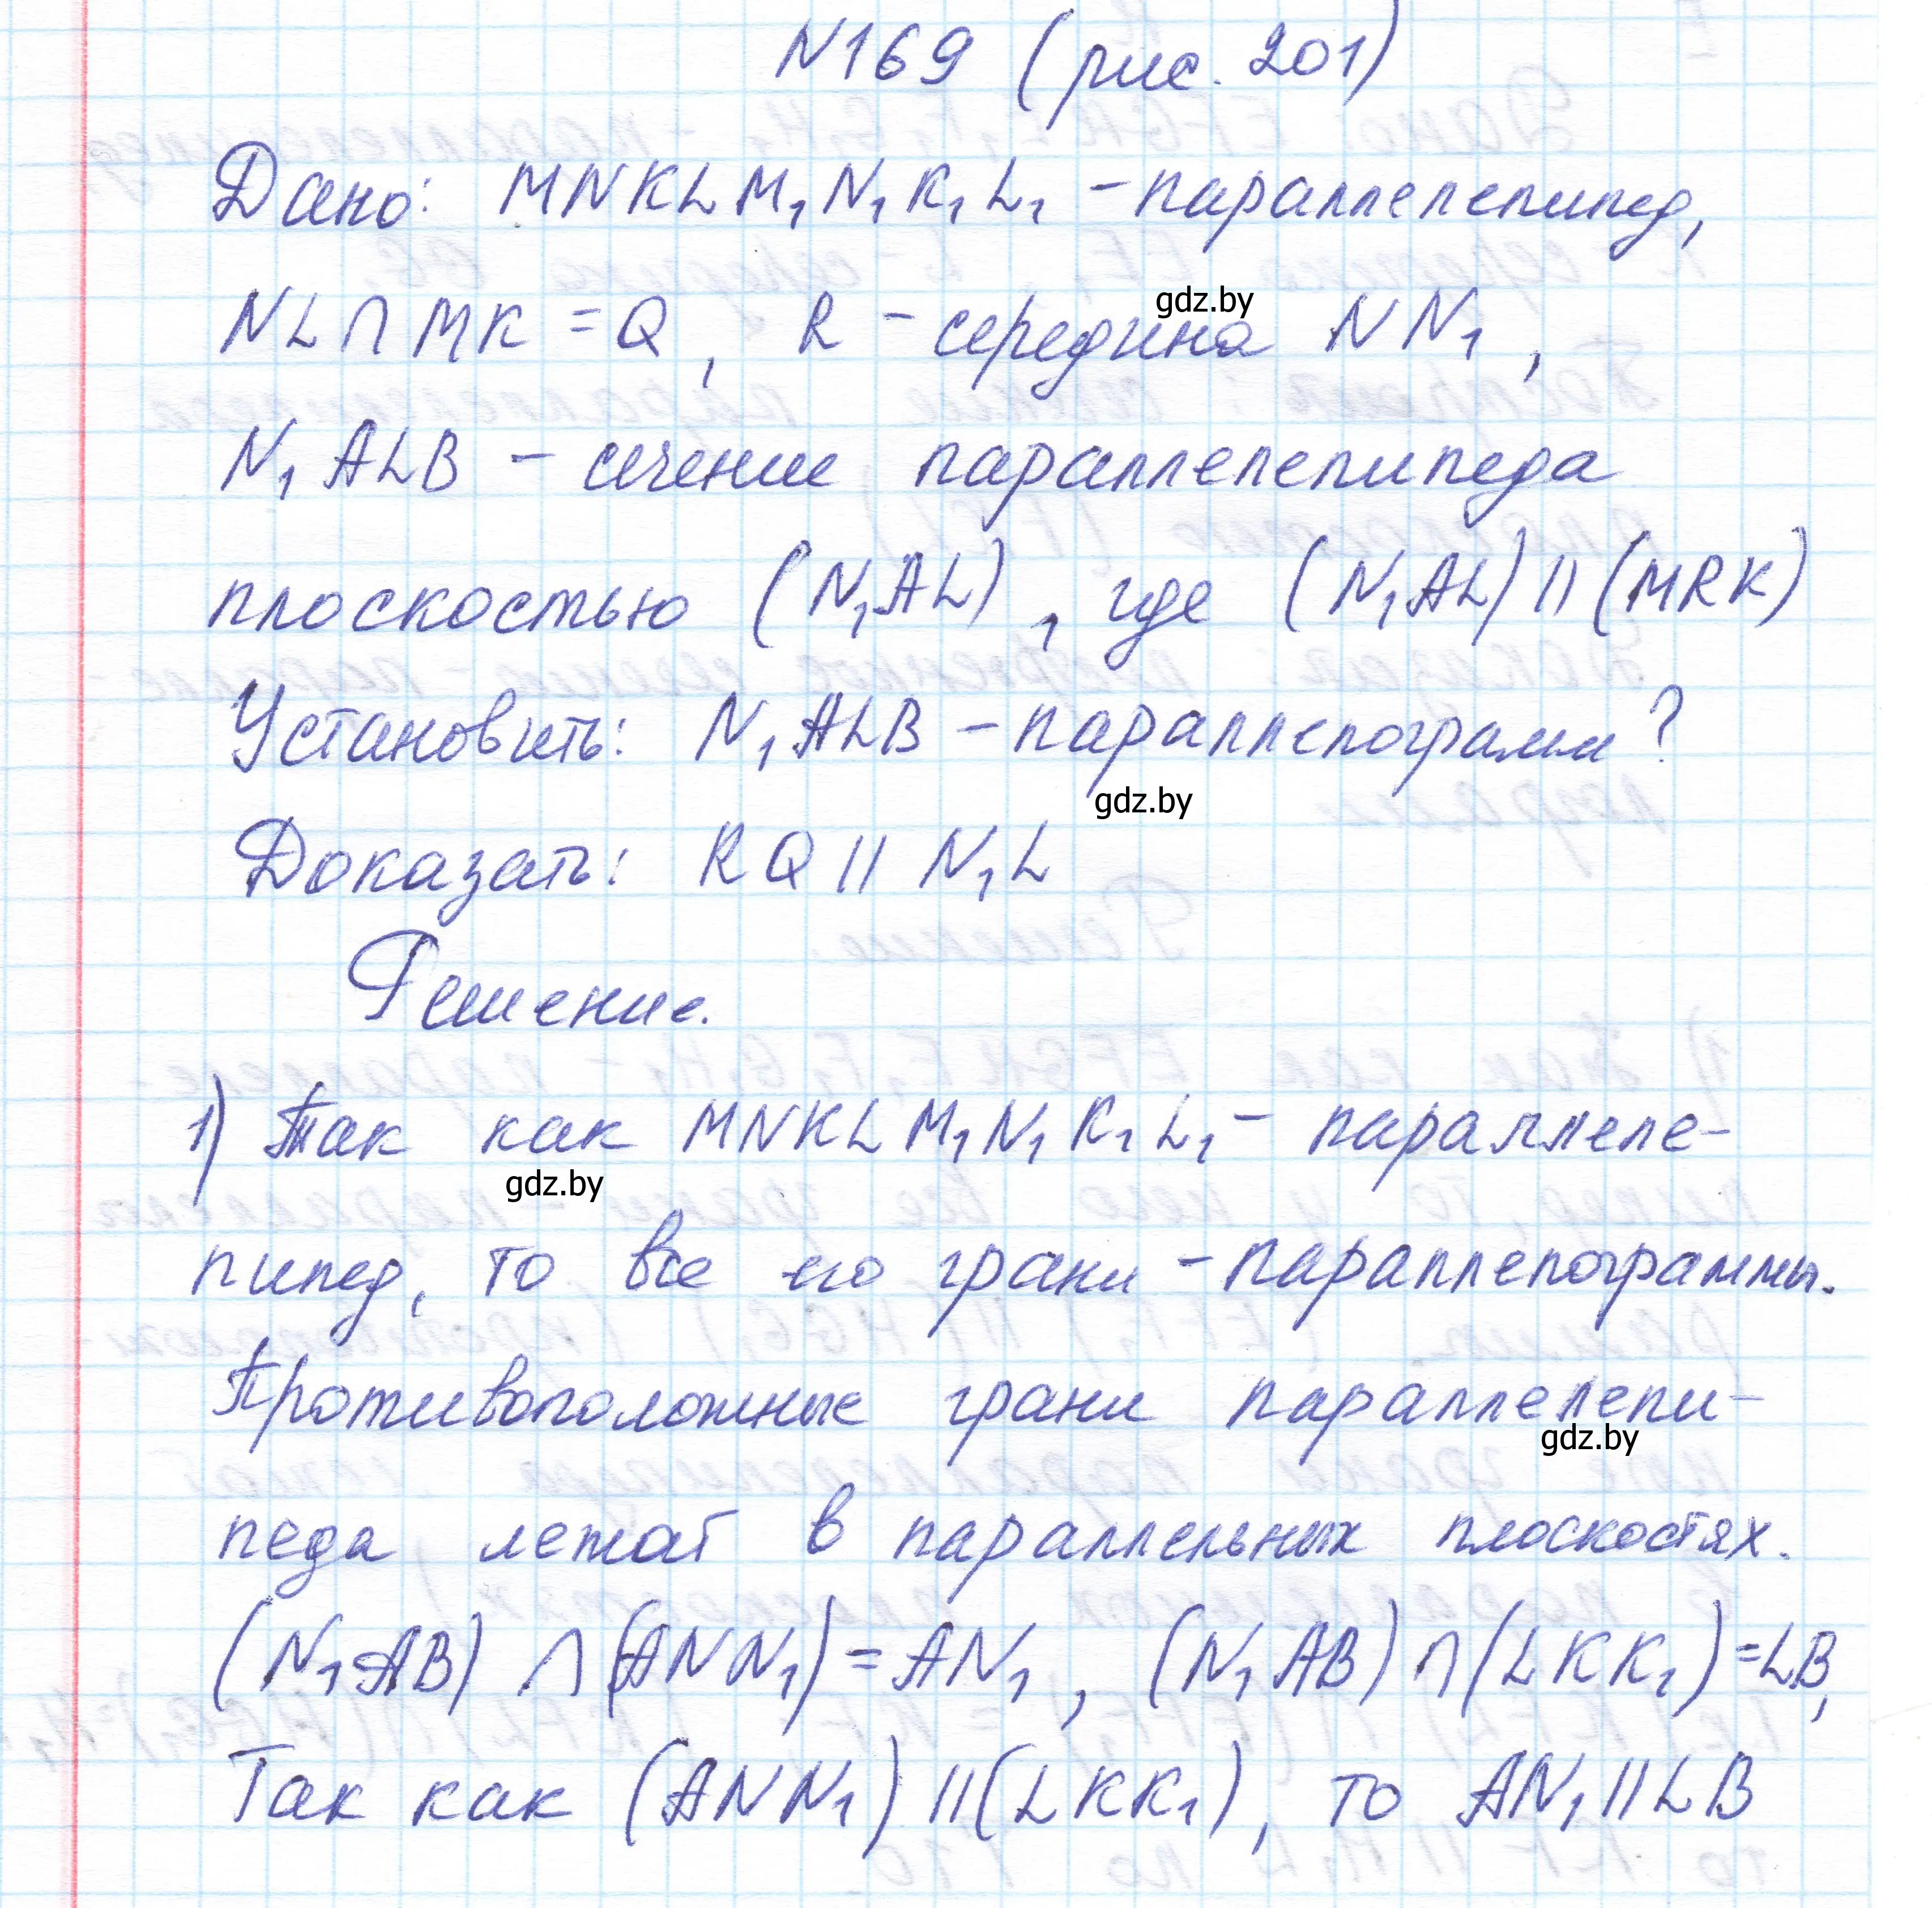 N169 (рис. 201)
Дано: MNKLM₁N₁K₁L₁ - параллелепипед,
gdz.by
NL ∩ MK = Q, R - середина NN₁,
N₁ALB - сечение параллелепипеда
плоскостью (N₁AL), где (N₁AL) || (MRK)
Установить: N₁ALB - параллелограмм?
gdz.by
Доказать: RQ || N₁L
Решение.
1) Так как MNKLM₁N₁K₁L₁ - параллеле-
gdz.by
пипед, то все его грани - параллелограммы.
Противоположные грани параллелепи-
gdz.by
педа лежат в параллельных плоскостях.
(N₁AB) ∩ (ANN₁) = AN₁, (N₁AB) ∩ (LKK₁) = LB,
Так как (ANN₁) || (LKK₁), то AN₁ || LB